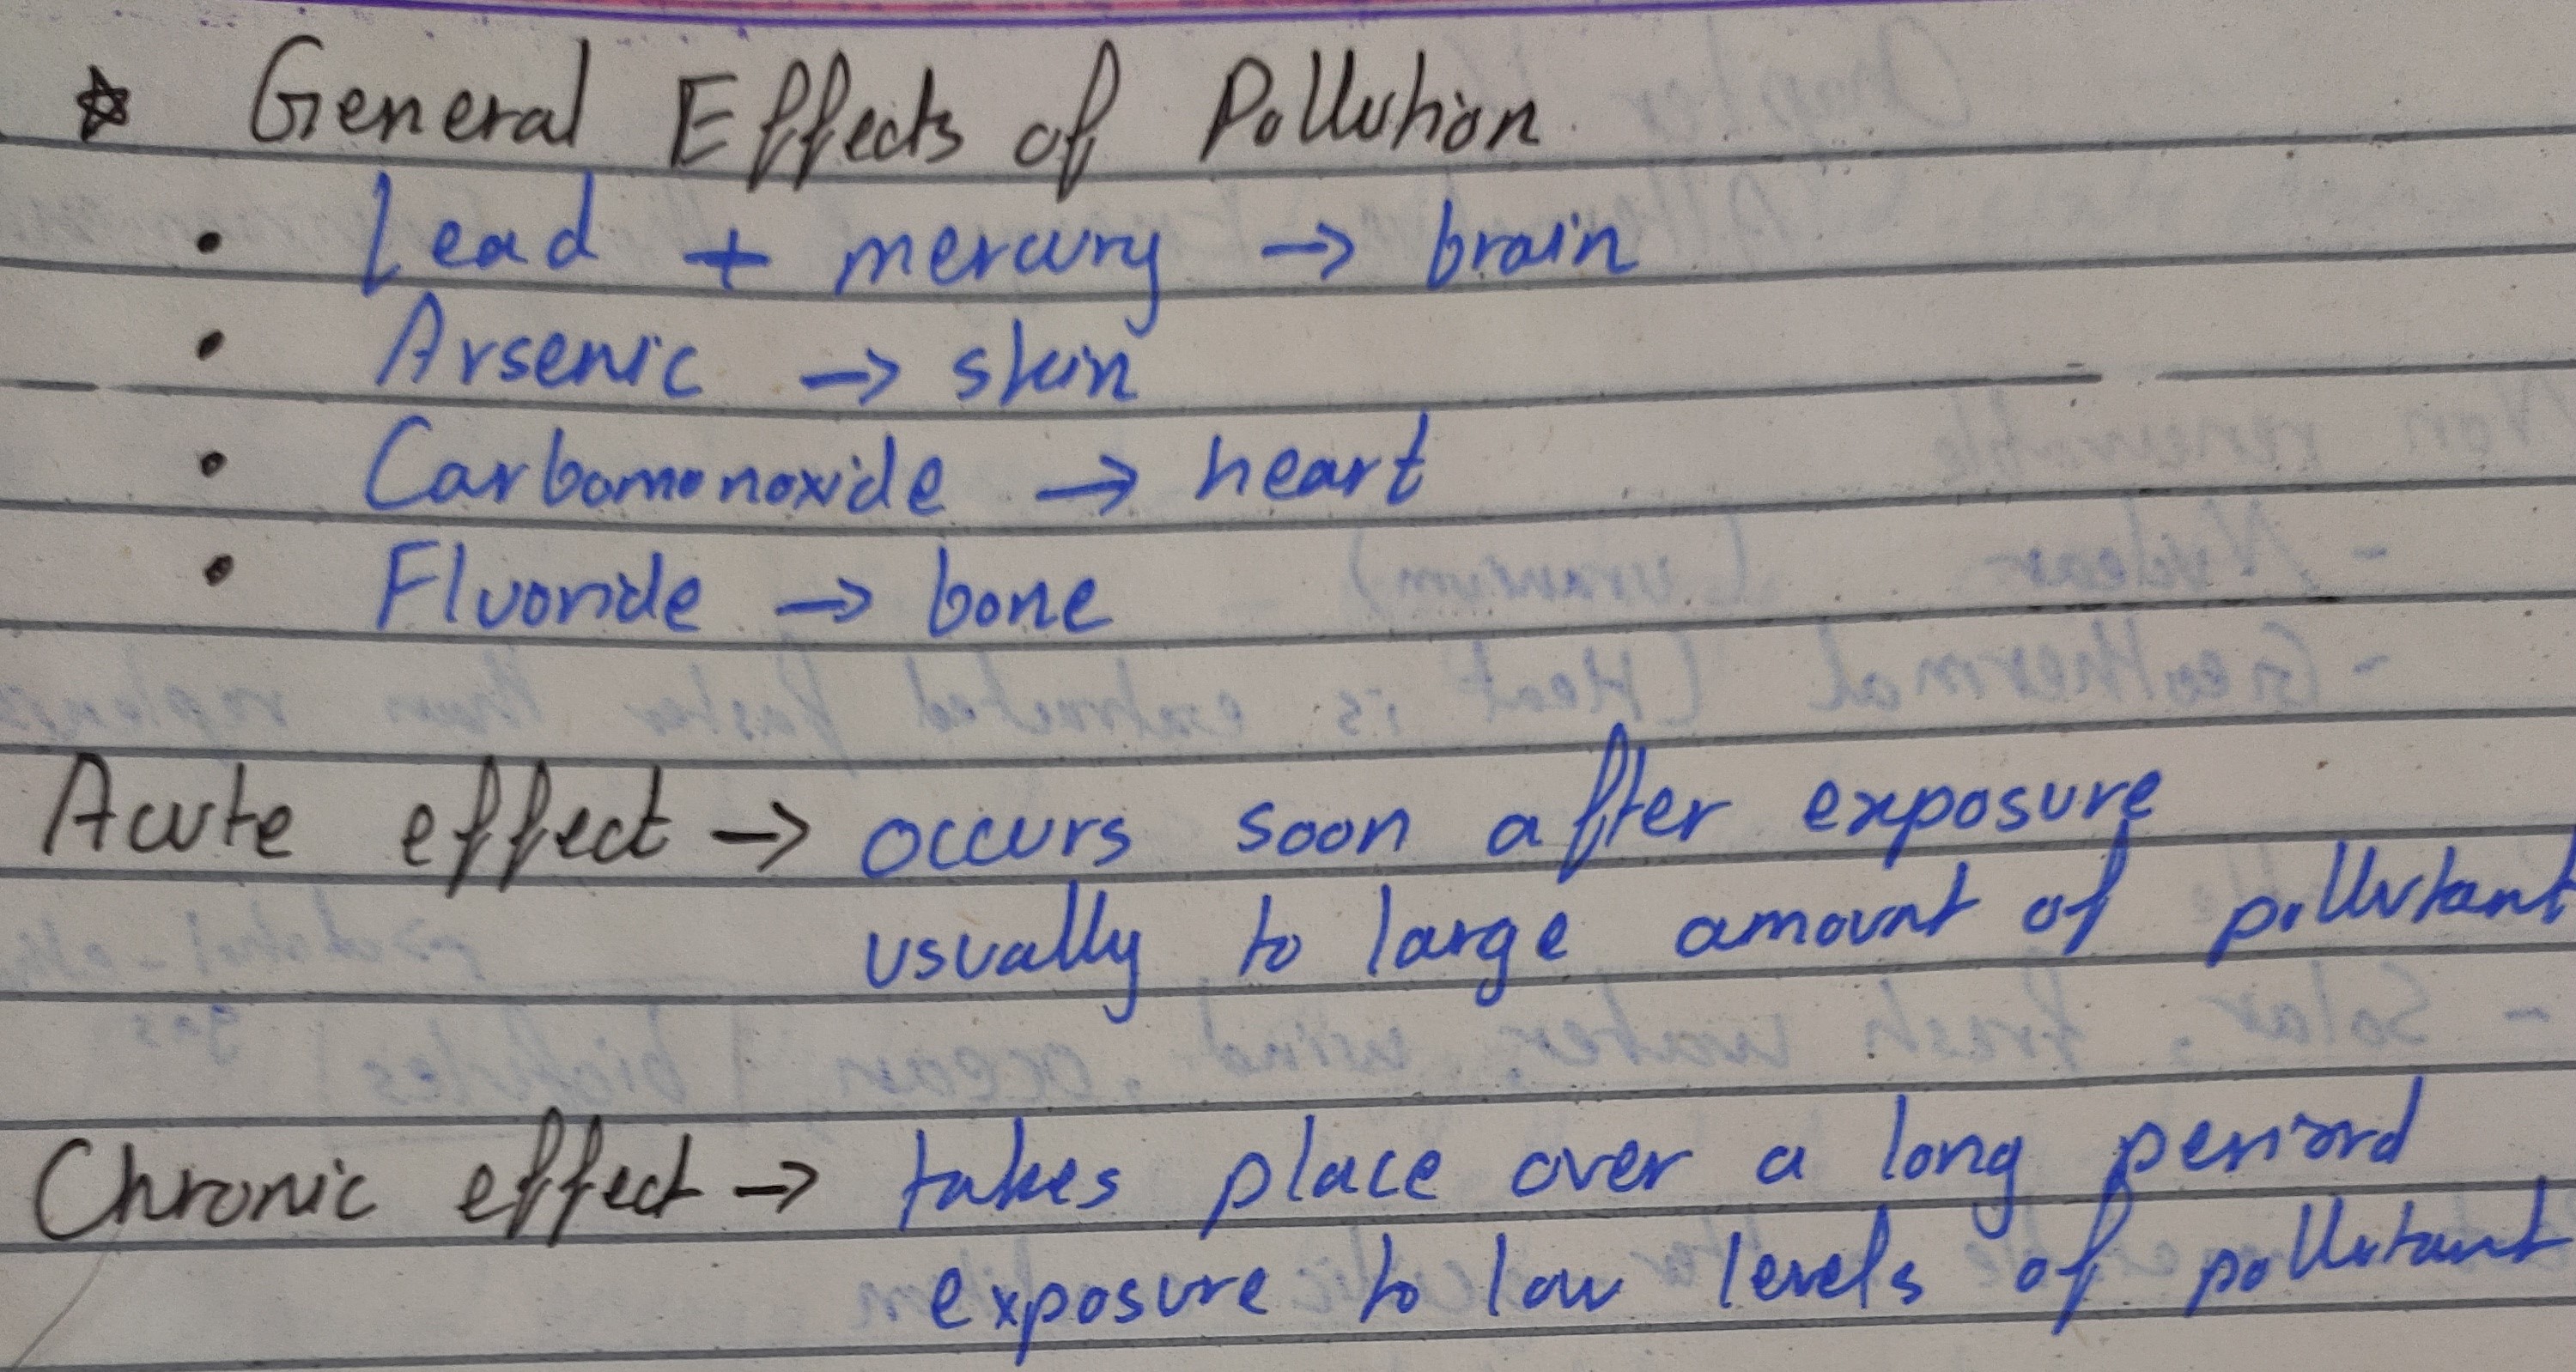 ☆ General Effects of Pollution
• Lead + mercury → brain
• Arsenic → skin
• Carbomonoxide → heart
• Fluoride → bone
Acute effect → occurs soon after exposure
usually to large amount of pollutant
Chronic effect → takes place over a long period
exposure to low levels of pollutant